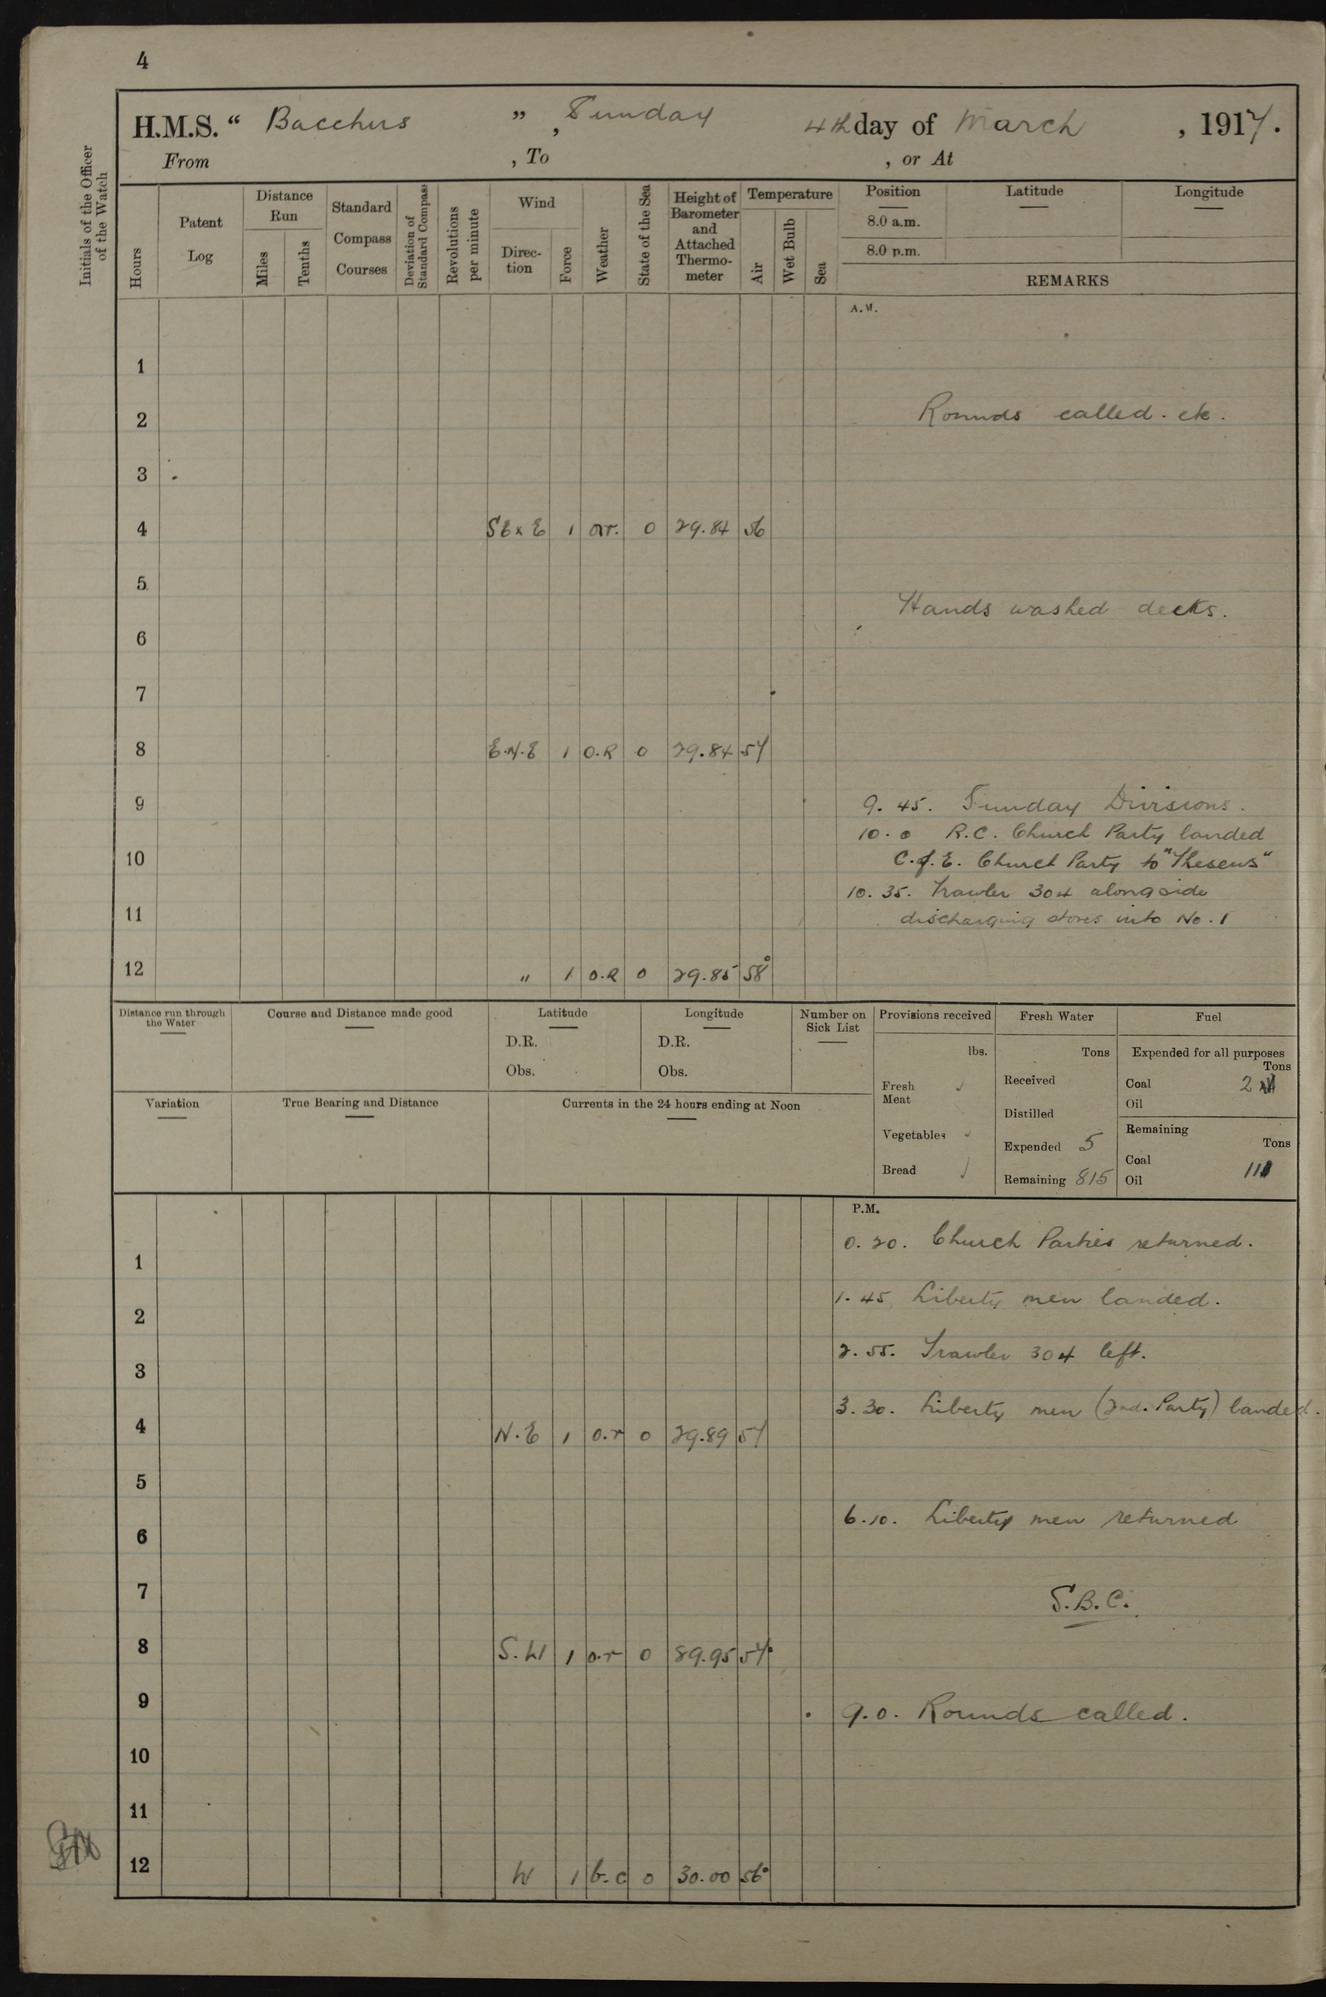 4
H.M.S. “ Bacchus ” , Sunday 4th day of March , 1917.
From , To , or At
Initials of the Officer of the Watch
Hours
Patent Log
Distance Run
Miles
Tenths
Standard Compass Courses
Deviation of Standard Compass
Revolutions per minute
Wind
Direc-tion
Force
Weather
State of the Sea
Height of Barometer and Attached Thermo-meter
Temperature
Air
Wet Bulb
Sea
Position Latitude Longitude
8.0 a.m.
8.0 p.m.
REMARKS
A.M.
1
2 Rounds called. etc.
3
4 SE x E 1 o.r. 0 29.84 56
5
Hands washed decks.
6
7
8 E.N.E 1 O.R 0 29.84 57
9 9. 45. Sunday Divisions.
10. 0 R.C. Church Party landed
10 C.of.E. Church Party to "Theseus"
10. 35. Trawler 304 alongside
11 discharging stores into No. 1
12 " 1 O.R 0 29.85 58°
Distance run through the Water
Course and Distance made good
Latitude
D.R.
Obs.
Longitude
D.R.
Obs.
Number on Sick List
Provisions received
lbs.
Fresh Meat
Vegetables
Bread
Fresh Water
Tons
Received
Distilled
Expended 5
Remaining 815
Fuel
Expended for all purposes
Tons
Coal 2
Oil
Remaining
Tons
Coal
Oil
Variation
True Bearing and Distance
Currents in the 24 hours ending at Noon
P.M.
0. 20. Church Parties returned.
1
1. 45 Liberty men landed.
2
2. 55. Trawler 304 left.
3
3. 30. Liberty men (2nd. Party) landed.
4 N.E 1 o.r 0 29.89 57
5
6. 10. Liberty men returned
6
7 S.B.C.
8 S.W 1 o.r 0 89.95 57°
9 9. 0. Rounds called.
10
11
12 W 1 b.c 0 30.00 56°